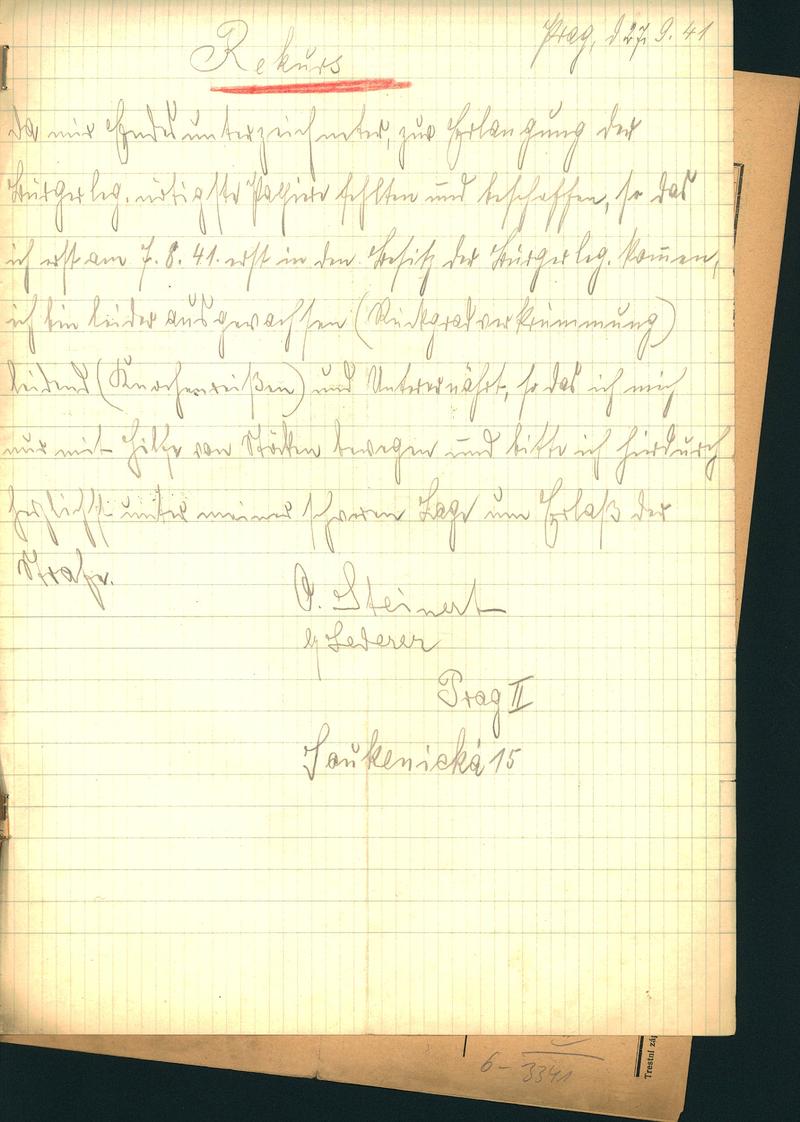 Prag, d 27. 9. 41
Rekurs
Da mir Endesunterzeichneter, zur Erlangung der
Bürgerleg. nötigste Papiere fehlten und beschaffen, so das
ich erst am 7. 8. 41. erst in den Besitz der Bürgerleg. kom̄en,
ich bin leider ausgewachsen (Rückgradverkrümmung)
leidend (Knochenreißen) und Unterernährt, so das ich mich
nur mit Hilfe von Stöcken bewegen und bitte ich hierdurch
herzlichst unter meiner schweren Lage um Erlaß der
Strafe.
O. Steinert
b/ Lederer
Prag II
Soukenická 15
6- 3341
Trestní